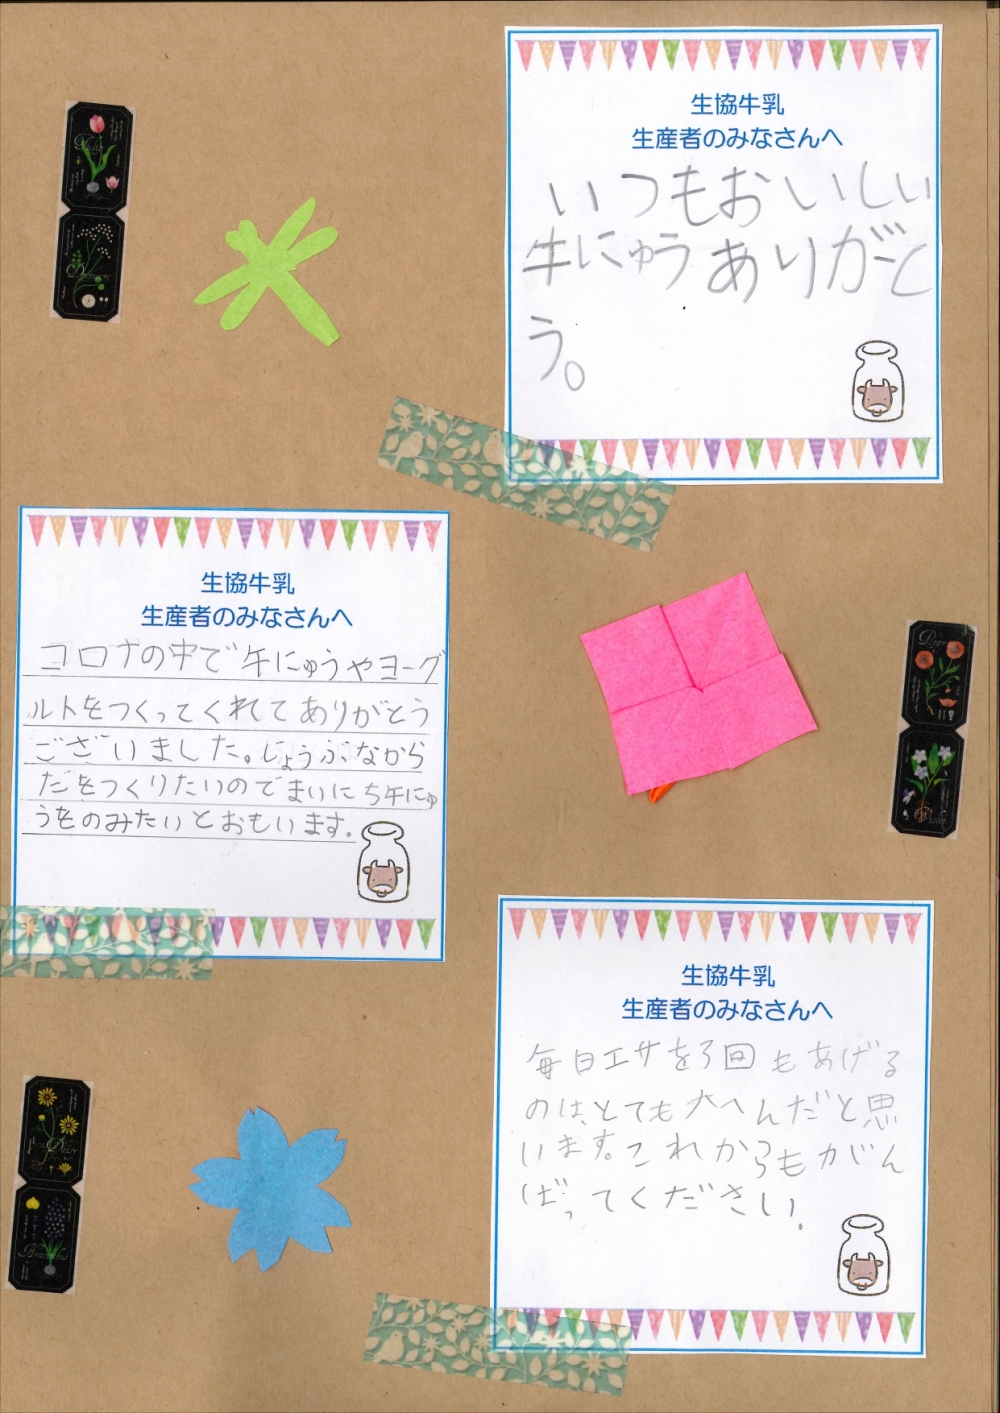 生協牛乳
生産者のみなさんへ
いつもおいしい
牛にゅうありがと
う。
生協牛乳
生産者のみなさんへ
コロナの中で牛にゅうやヨーグ
ルトをつくってくれてありがとう
ございました。じょうぶなから
だをつくりたいのでまいにち牛にゅ
うをのみたいとおもいます。
生協牛乳
生産者のみなさんへ
毎日エサを3回もあげる
のは、とても大へんだと思
います。これからもがん
ばってください。